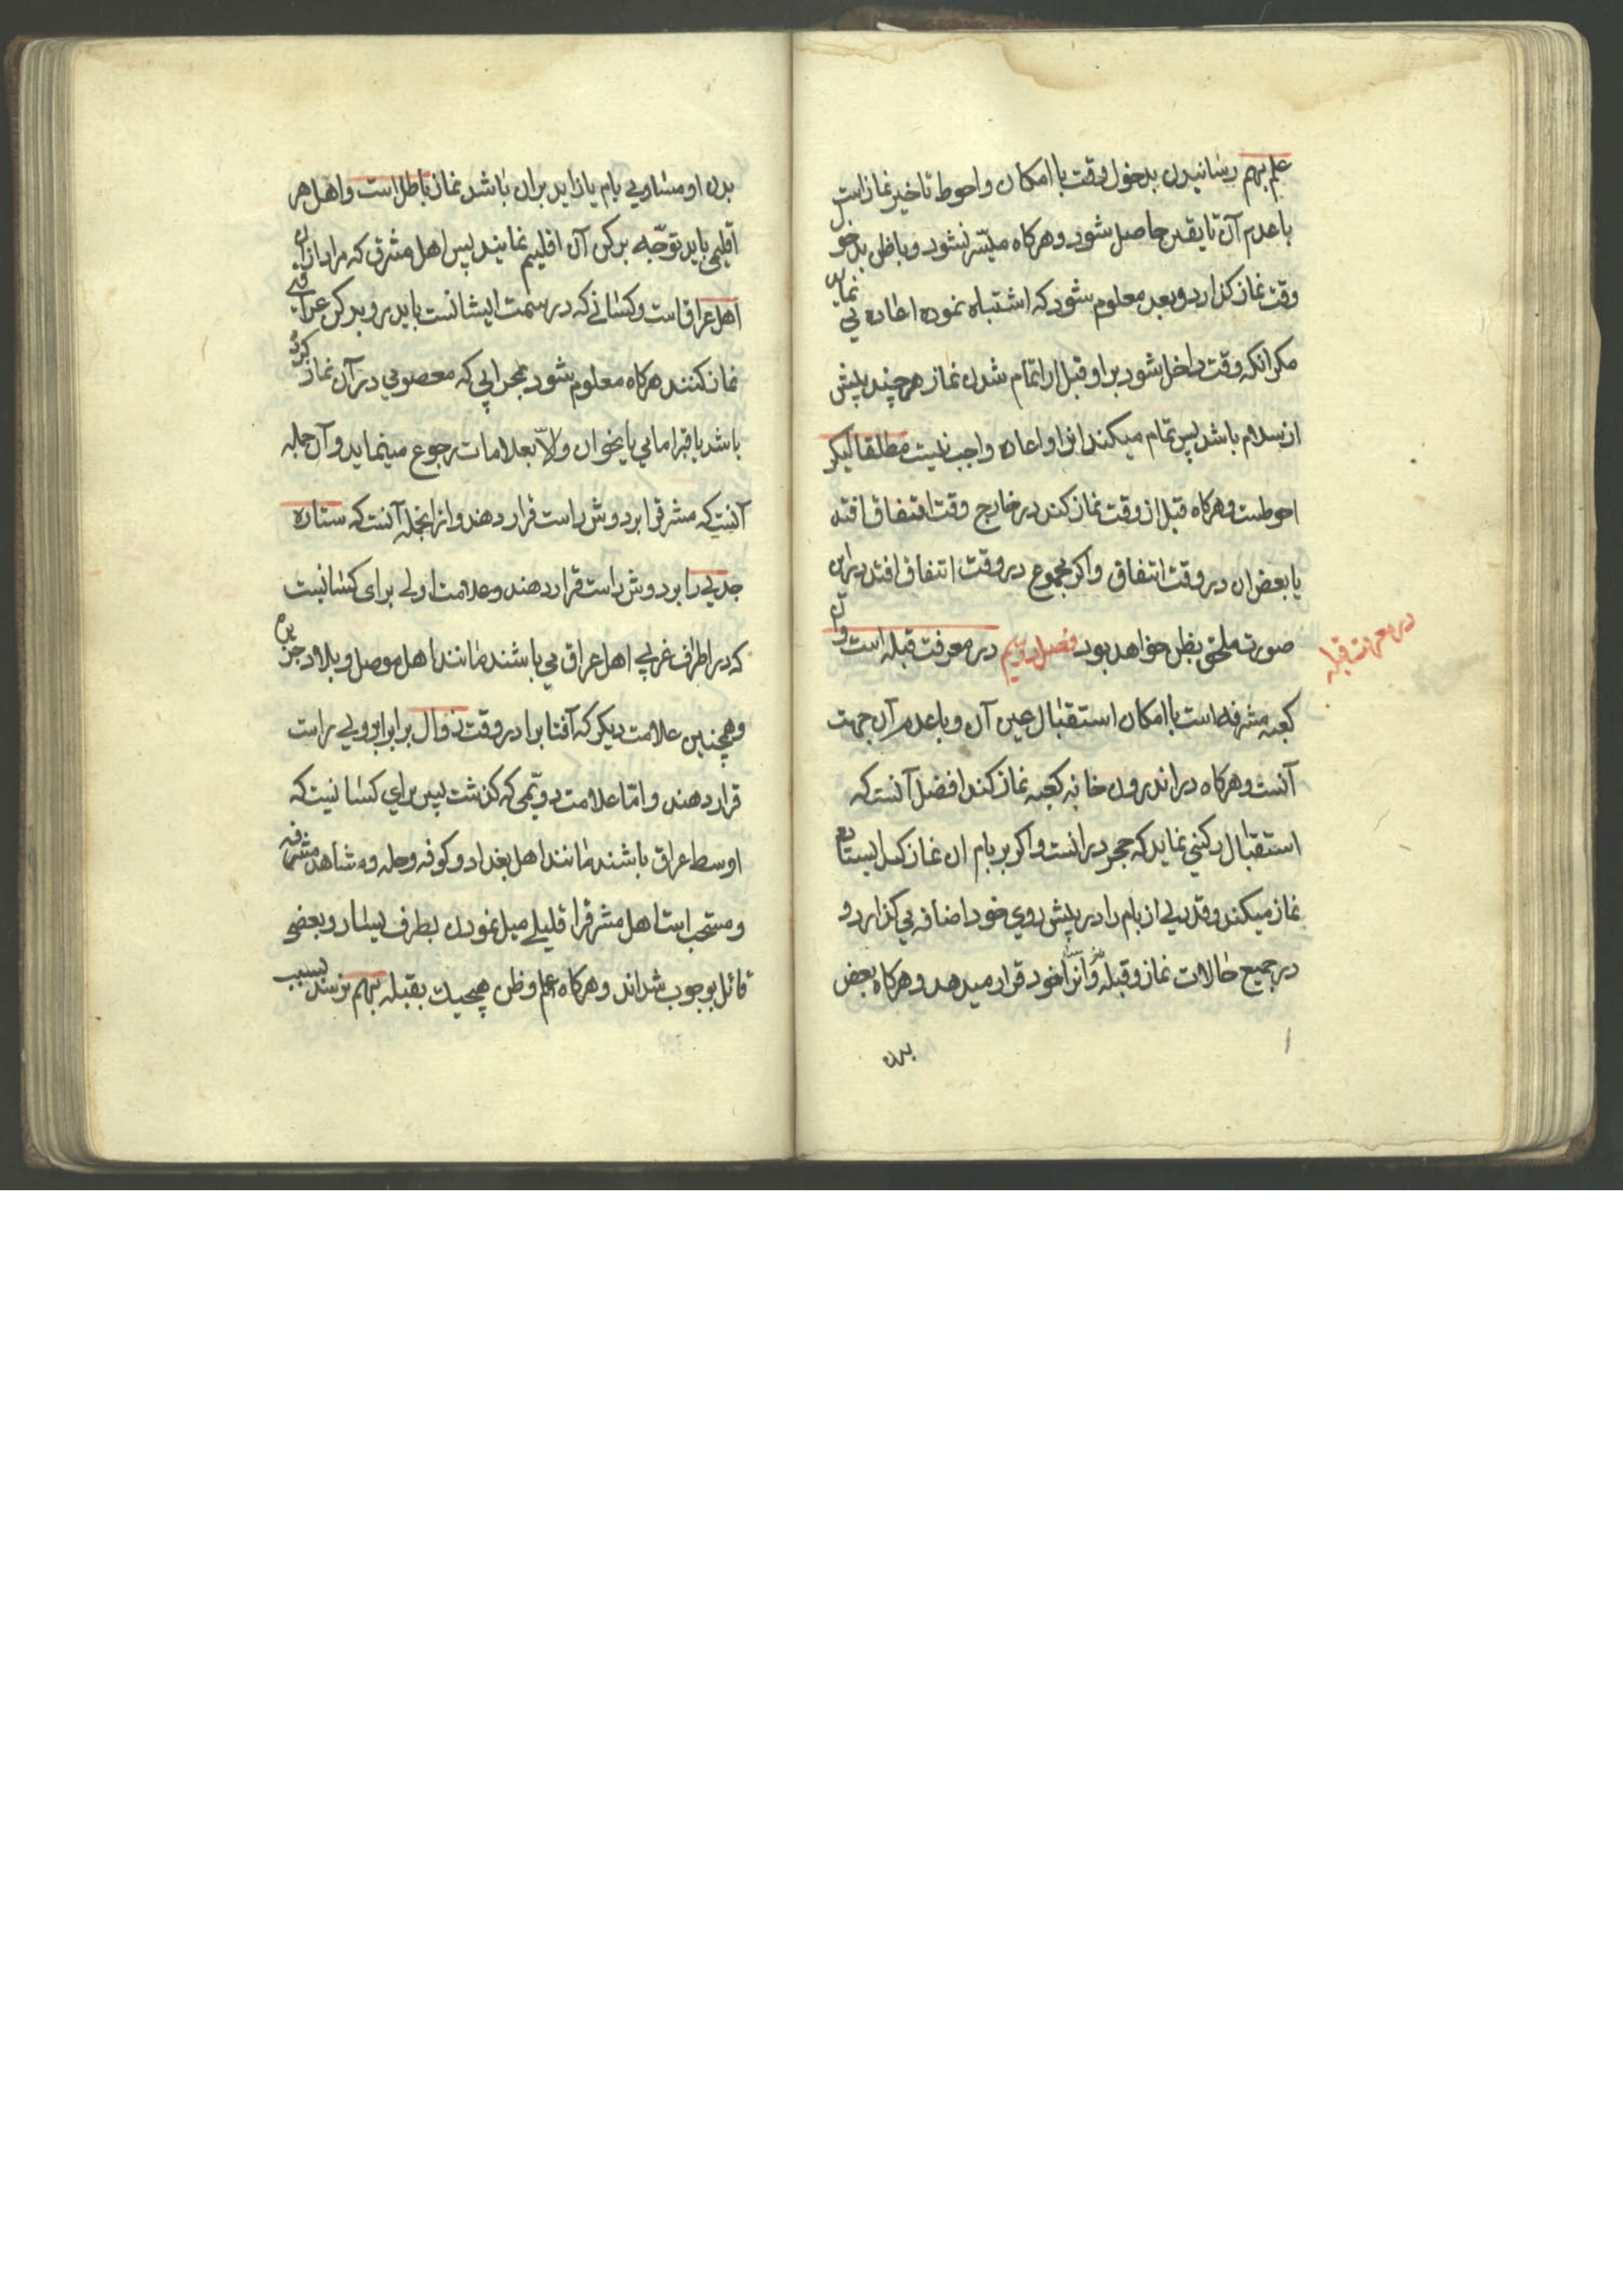 علم بهم رسانیدن بدخول وقت با امکان واحوط تاخیر نماز است
با عدم آن تا یقین حاصل شود وهرکاه میسّر نشود وباظن بدخول
وقت نماز کذارد وبعد معلوم شود که اشتباه نموده اعاده می نماید
مکر انکه وقت داخل شود براو قبل از اتمام شدن نماز هرچند پیش
از سلام باشد پس تمام میکند انرا واعاده واجب نیست مطلقا لیکن
احوطست وهرکاه قبل از وقت نماز کند در خارج وقت اتفاق افتد
یا بعض ان در وقت اتفاق واکر مجموع در وقت اتفاق افتد در این
صورت ملحق بظن خواهد بود فصل دویم در معرفت قبله است وآن
در معرفت قبله
کعبه مشرفه است با امکان استقبال عین آن وبا عدم آن جهت
آنست وهرکاه در اندرون خانه کعبه نماز کند افضل آنست که
استقبال رکنی نماید که حجر در انست واکر بر بام ان نماز کند ایستاده
نماز میکند وقدری از بام را در پیش روی خود اضافه می کذارد و
در جمیع حالات نماز وقبله وانرا خود قرار میدهد وهرکاه بعض
بدن
بدن او مساوی بام یا زاید بران باشد نماز باطل است واهل هر
اقلیمی باید توجّه برکن آن اقلیم نمایند پس اهل مشرق که مراد از ان
اهل عراق است وکسانی که در سمت ایشانست باید رو برکن عراقی
نماز کنند هرکاه معلوم شود بمحرابی که معصومی در آن نماز کرده
باشد یا قبر امامی یا نحوان والّا بعلامات رجوع مینماید وآن جمله
آنست که مشرق را بر دوش راست قرار دهند واز انجمله آنست که ستاره
جدی را بر دوش راست قرار دهند وعلامت اولی برای کسانیست
که در اطراف غربی اهل عراق می باشند مانند اهل موصل وبلاد جزیره
وهمچنین علامت دیکر که آفتاب را در وقت زوال برابر ابروی راست
قرار دهند وامّا علامت دویّمی که کذشت پس برای کسانیست که
اوسط عراق باشند مانند اهل بغداد وکوفه وحله ومشاهد مشرفه
ومستحب است اهل مشرق را قلیلی میل نمودن بطرف یسار وبعضی
قائل بوجوب شده‌اند وهرکاه علم وظن هیچیک بقبله بهم نرسد بسبب